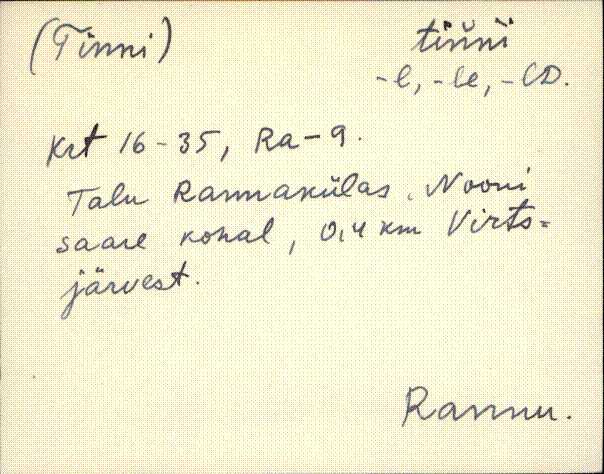 (Tinni)
tiňňi
-l, -le, -lD.
Krt 16-35, Ra-9.
Talu Rannakülas. Nooni
saare kohal, 0,4 km Virts=
järvest.
Rannu.